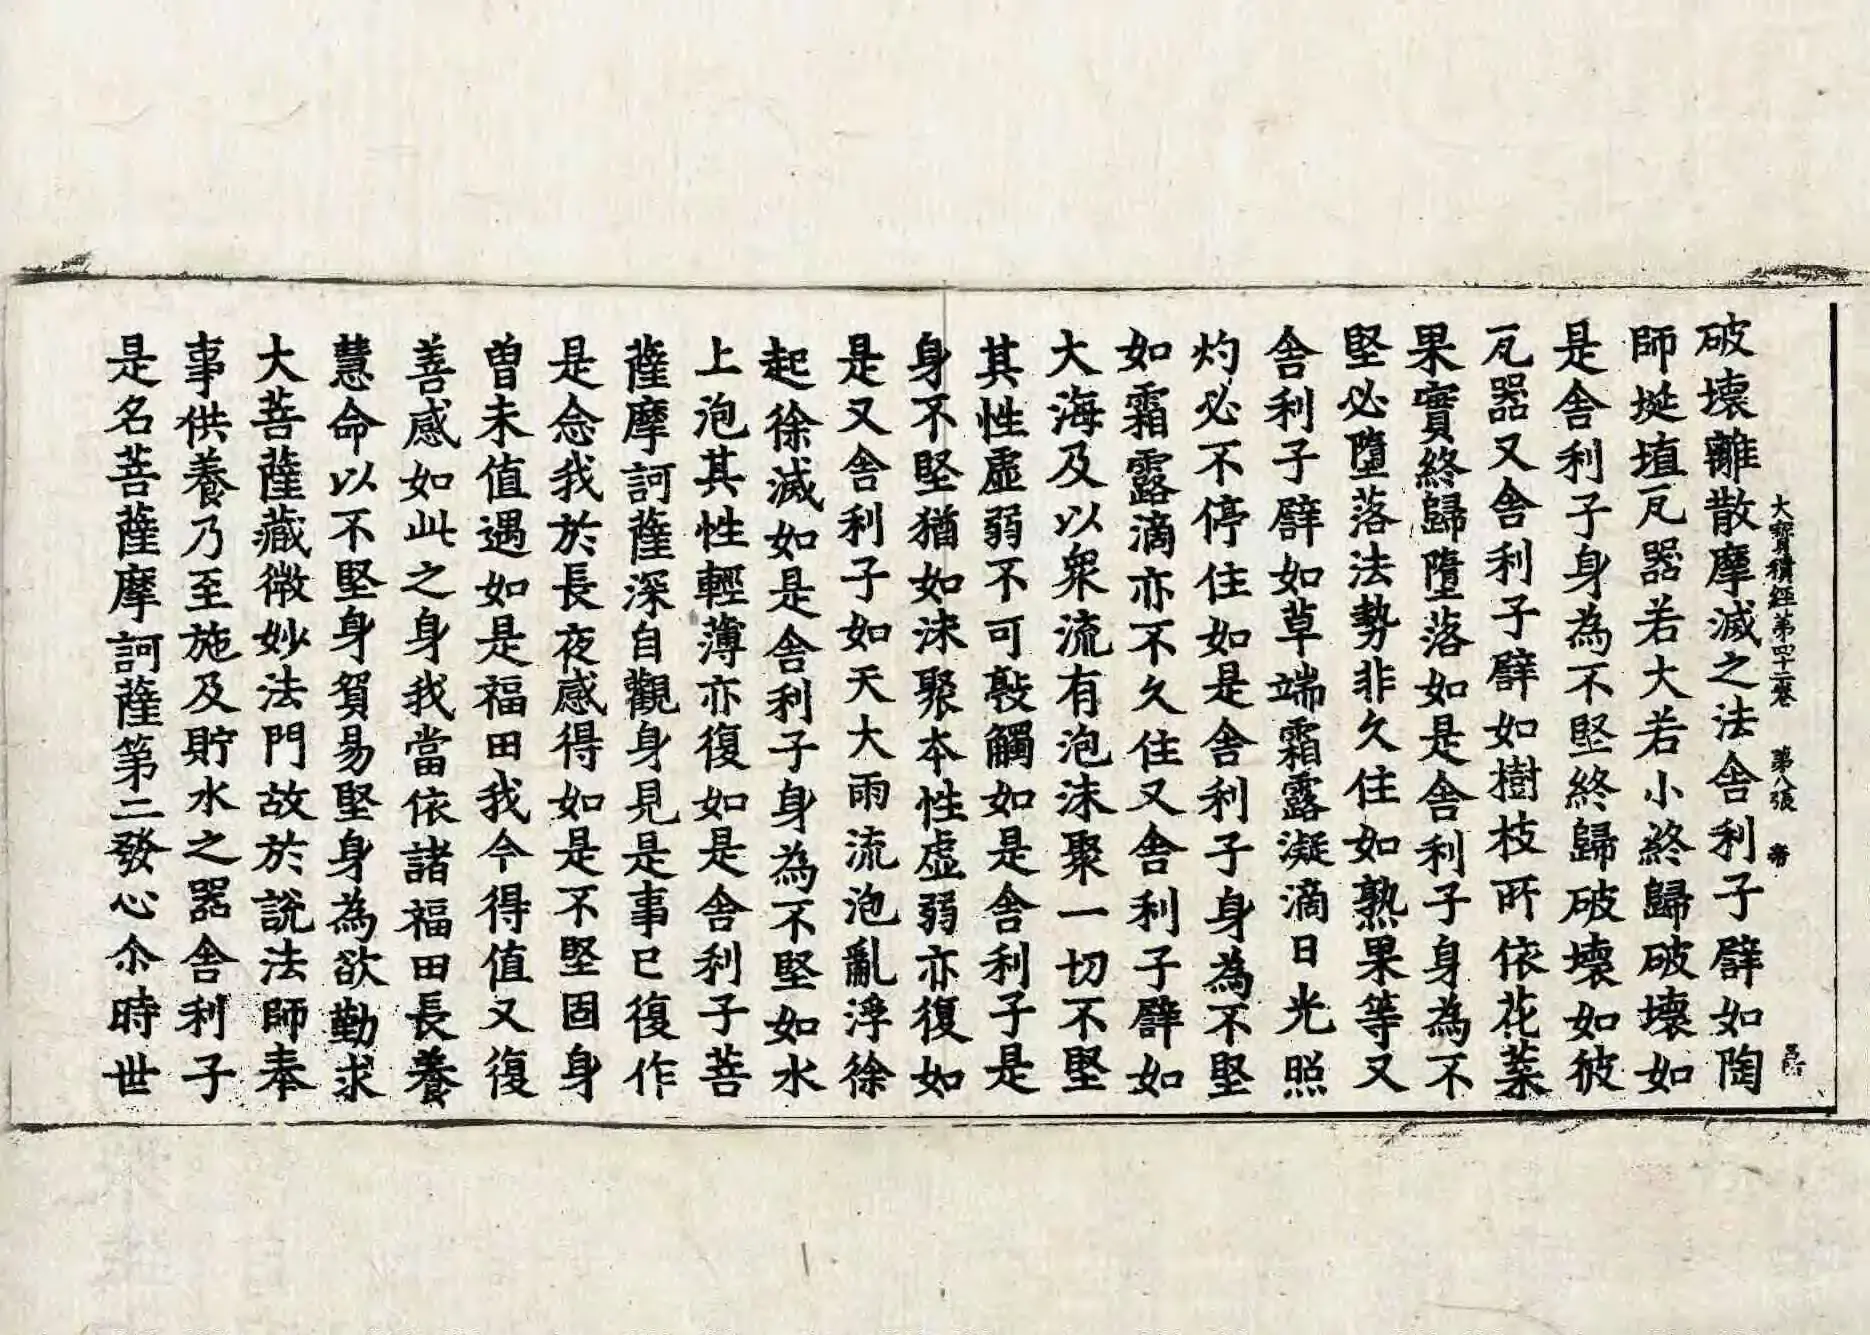 大寳積經第四十二卷 第八張 帝
破壞離散摩滅之法舍利子譬如陶
師埏埴瓦器若大若小終歸破壞如
是舍利子身為不堅終歸破壞如彼
瓦器又舍利子譬如樹枝所依花葉
果實終歸墮落如是舍利子身為不
堅必墮落法勢非久住如熟果等又
舍利子譬如草端霜露凝滴日光照
灼必不停住如是舍利子身為不堅
如霜露滴亦不久住又舍利子譬如
大海及以衆流有泡沫聚一切不堅
其性虛弱不可敲觸如是舍利子是
身不堅猶如沫聚本性虛弱亦復如
是又舍利子如天大雨流泡亂浮徐
起徐滅如是舍利子身為不堅如水
上泡其性輕薄亦復如是舍利子菩
薩摩訶薩深自觀身見是事已復作
是念我於長夜感得如是不堅固身
曾未值遇如是福田我今得值又復
善感如此之身我當依諸福田長養
慧命以不堅身貿易堅身為欲勤求
大菩薩藏微妙法門故於說法師奉
事供養乃至施及貯水之器舍利子
是名菩薩摩訶薩第二發心尒時世